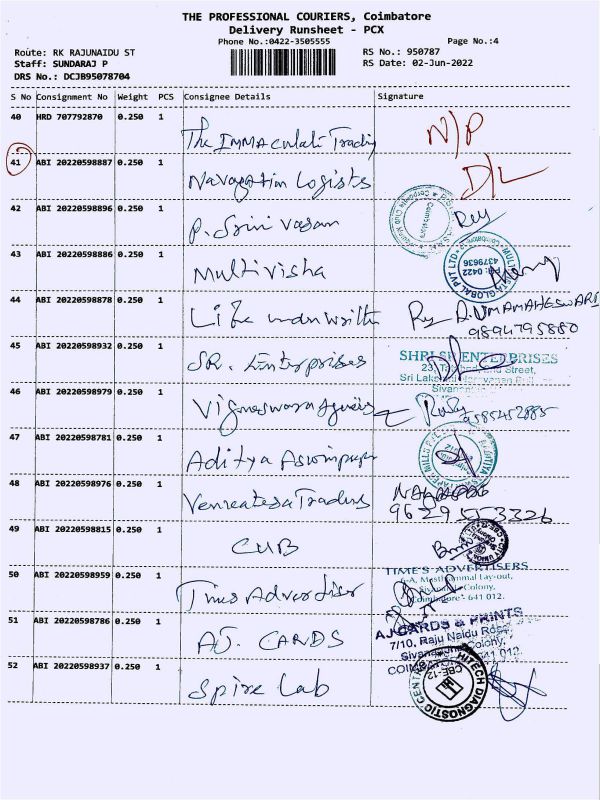 THE PROFESSIONAL COURIERS, Coimbatore
Delivery Runsheet - PCX
Phone No.:0422-3505555
Page No.:4
Route: RK RAJUNAIDU ST
RS No.: 950787
Staff: SUNDARAJ P
RS Date: 02-Jun-2022
DRS No.: DCJB95078704
S No Consignment No Weight PCS Consignee Details Signature
40 HRD 707792870 0.250 1
The Immaculate Trading N/P
41 ABI 20220598887 0.250 1
Navagation Logists D/L
42 ABI 20220598896 0.250 1
P. Srini vasan
43 ABI 20220598886 0.250 1
Multivisha
GLOBAL PVT LTD
PH: 0422
4379636
44 ABI 20220598878 0.250 1
Life underwritte UMAMAHESWARI
9894795880
45 ABI 20220598932 0.250 1
SR. Enterprises
SHRI SR ENTERPRISES
Street,
46 ABI 20220598979 0.250 1
Vigneswara Agencies
9585452885
47 ABI 20220598781 0.250 1
Aditya
48 ABI 20220598976 0.250 1
Venkatesa Traders
9629553326
49 ABI 20220598815 0.250 1
CUB
50 ABI 20220598959 0.250 1
Times Advertiser
TIME'S ADVERTISERS
6-A, Masthammal Lay-out,
Colony,
Coimbatore - 641 012.
51 ABI 20220598786 0.250 1
AJ. CARDS
AJ CARDS & PRINTS
7/10, Raju Naidu Road,
Colony,
641 012
52 ABI 20220598937 0.250 1
Spire Lab
HITECH DIAGNOSTIC CENTRE
CBE-12